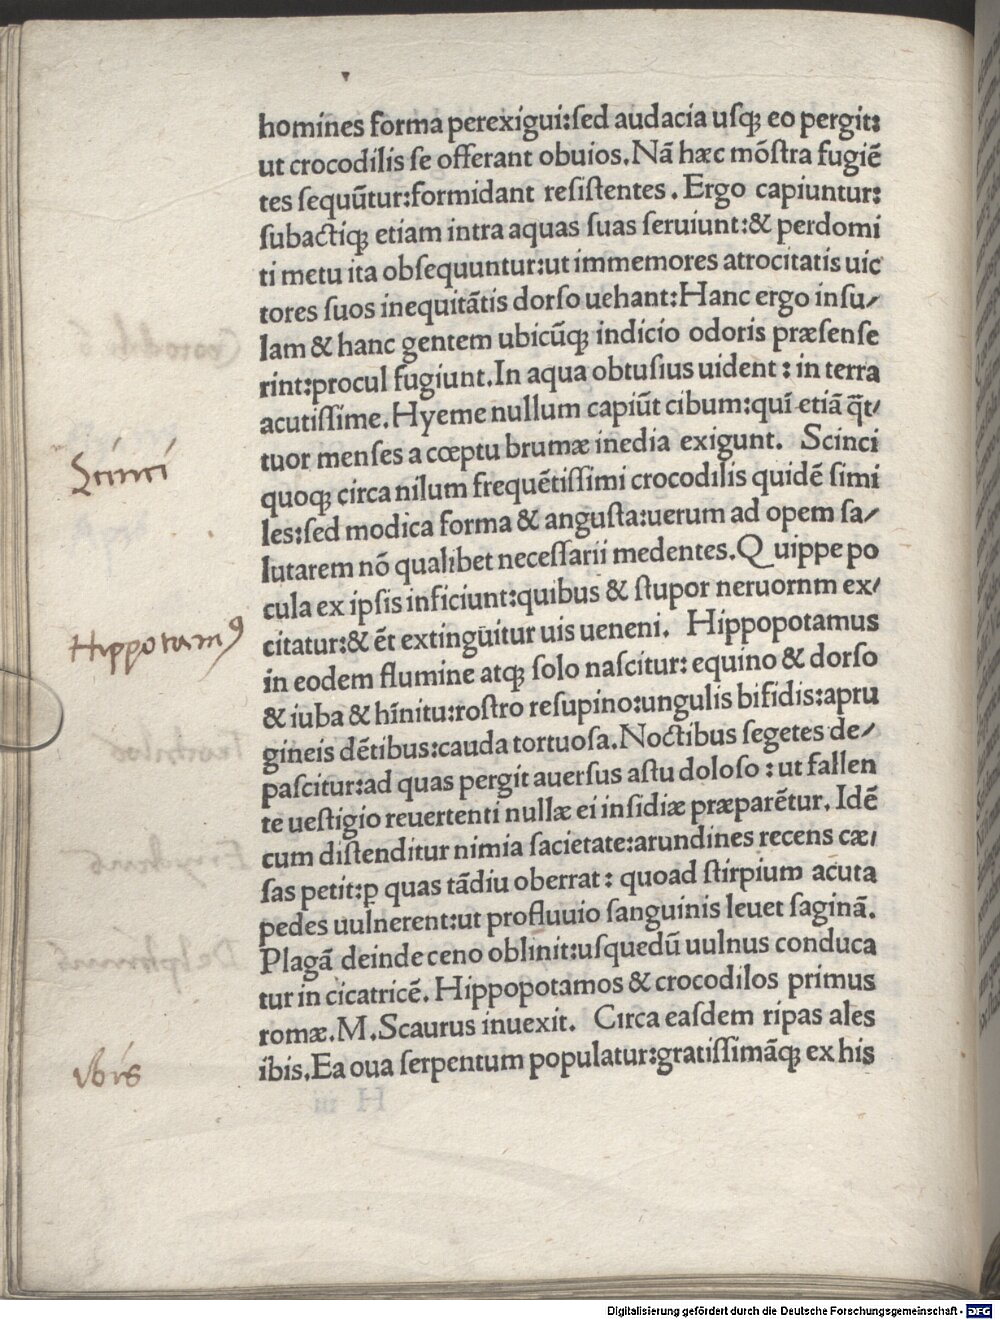 homines forma perexigui:sed audacia uſqꝫ eo pergit:
ut crocodilis ſe offerant obuios.Nã hæc mõſtra fugiẽ
tes ſequũtur:formidant reſiſtentes. Ergo capiuntur:
ſubactiqꝫ etiam intra aquas ſuas ſeruiunt:& perdomi
ti metu ita obſequuntur:ut immemores atrocitatis uic
tores ſuos inequitãtis dorſo uehant:Hanc ergo inſu/
lam & hanc gentem ubicũqꝫ indicio odoris præſenſe
rint:procul fugiunt.In aqua obtuſius uident: in terra
acutiſſime.Hyeme nullum capiũt cibum:quĩ etiã q̃t/
tuor menſes a cœptu brumæ inedia exigunt. Scinci
Scinci
quoqꝫ circa nilum frequẽtiſſimi crocodilis quidẽ ſimi
les:ſed modica forma & anguſta:uerum ad opem ſa/
lutarem nõ qualibet neceſſarii medentes.Quippe po
cula ex ipſis inficiunt:quibus & ſtupor neruornm ex/
citatur:& ẽt extinguitur uis ueneni. Hippopotamus
Hippotamꝰ
in eodem flumine atqꝫ ſolo naſcitur: equino & dorſo
& iuba & hĩnitu:roſtro reſupino:ungulis bifidis:apru
gineis dẽtibus:cauda tortuoſa.Noctibus ſegetes de/
paſcitur:ad quas pergit auerſus aſtu doloſo: ut fallen
te ueſtigio reuertenti nullæ ei inſidiæ præparẽtur. Idẽ
cum diſtenditur nimia ſacietate:arundines recens cæ/
ſas petit:ꝑ quas tãdiu oberrat: quoad ſtirpium acuta
pedes uulnerent:ut profluuio ſanguinis leuet ſaginã.
Plagã deinde ceno oblinit:uſquedũ uulnus conduca
tur in cicatricẽ. Hippopotamos & crocodilos primus
romæ.M.Scaurus inuexit. Circa eaſdem ripas ales
ibis.Ea oua ſerpentum populatur:gratiſſimãqꝫ ex his
ibis
Digitalisierung gefördert durch die Deutsche Forschungsgemeinschaft - DFG